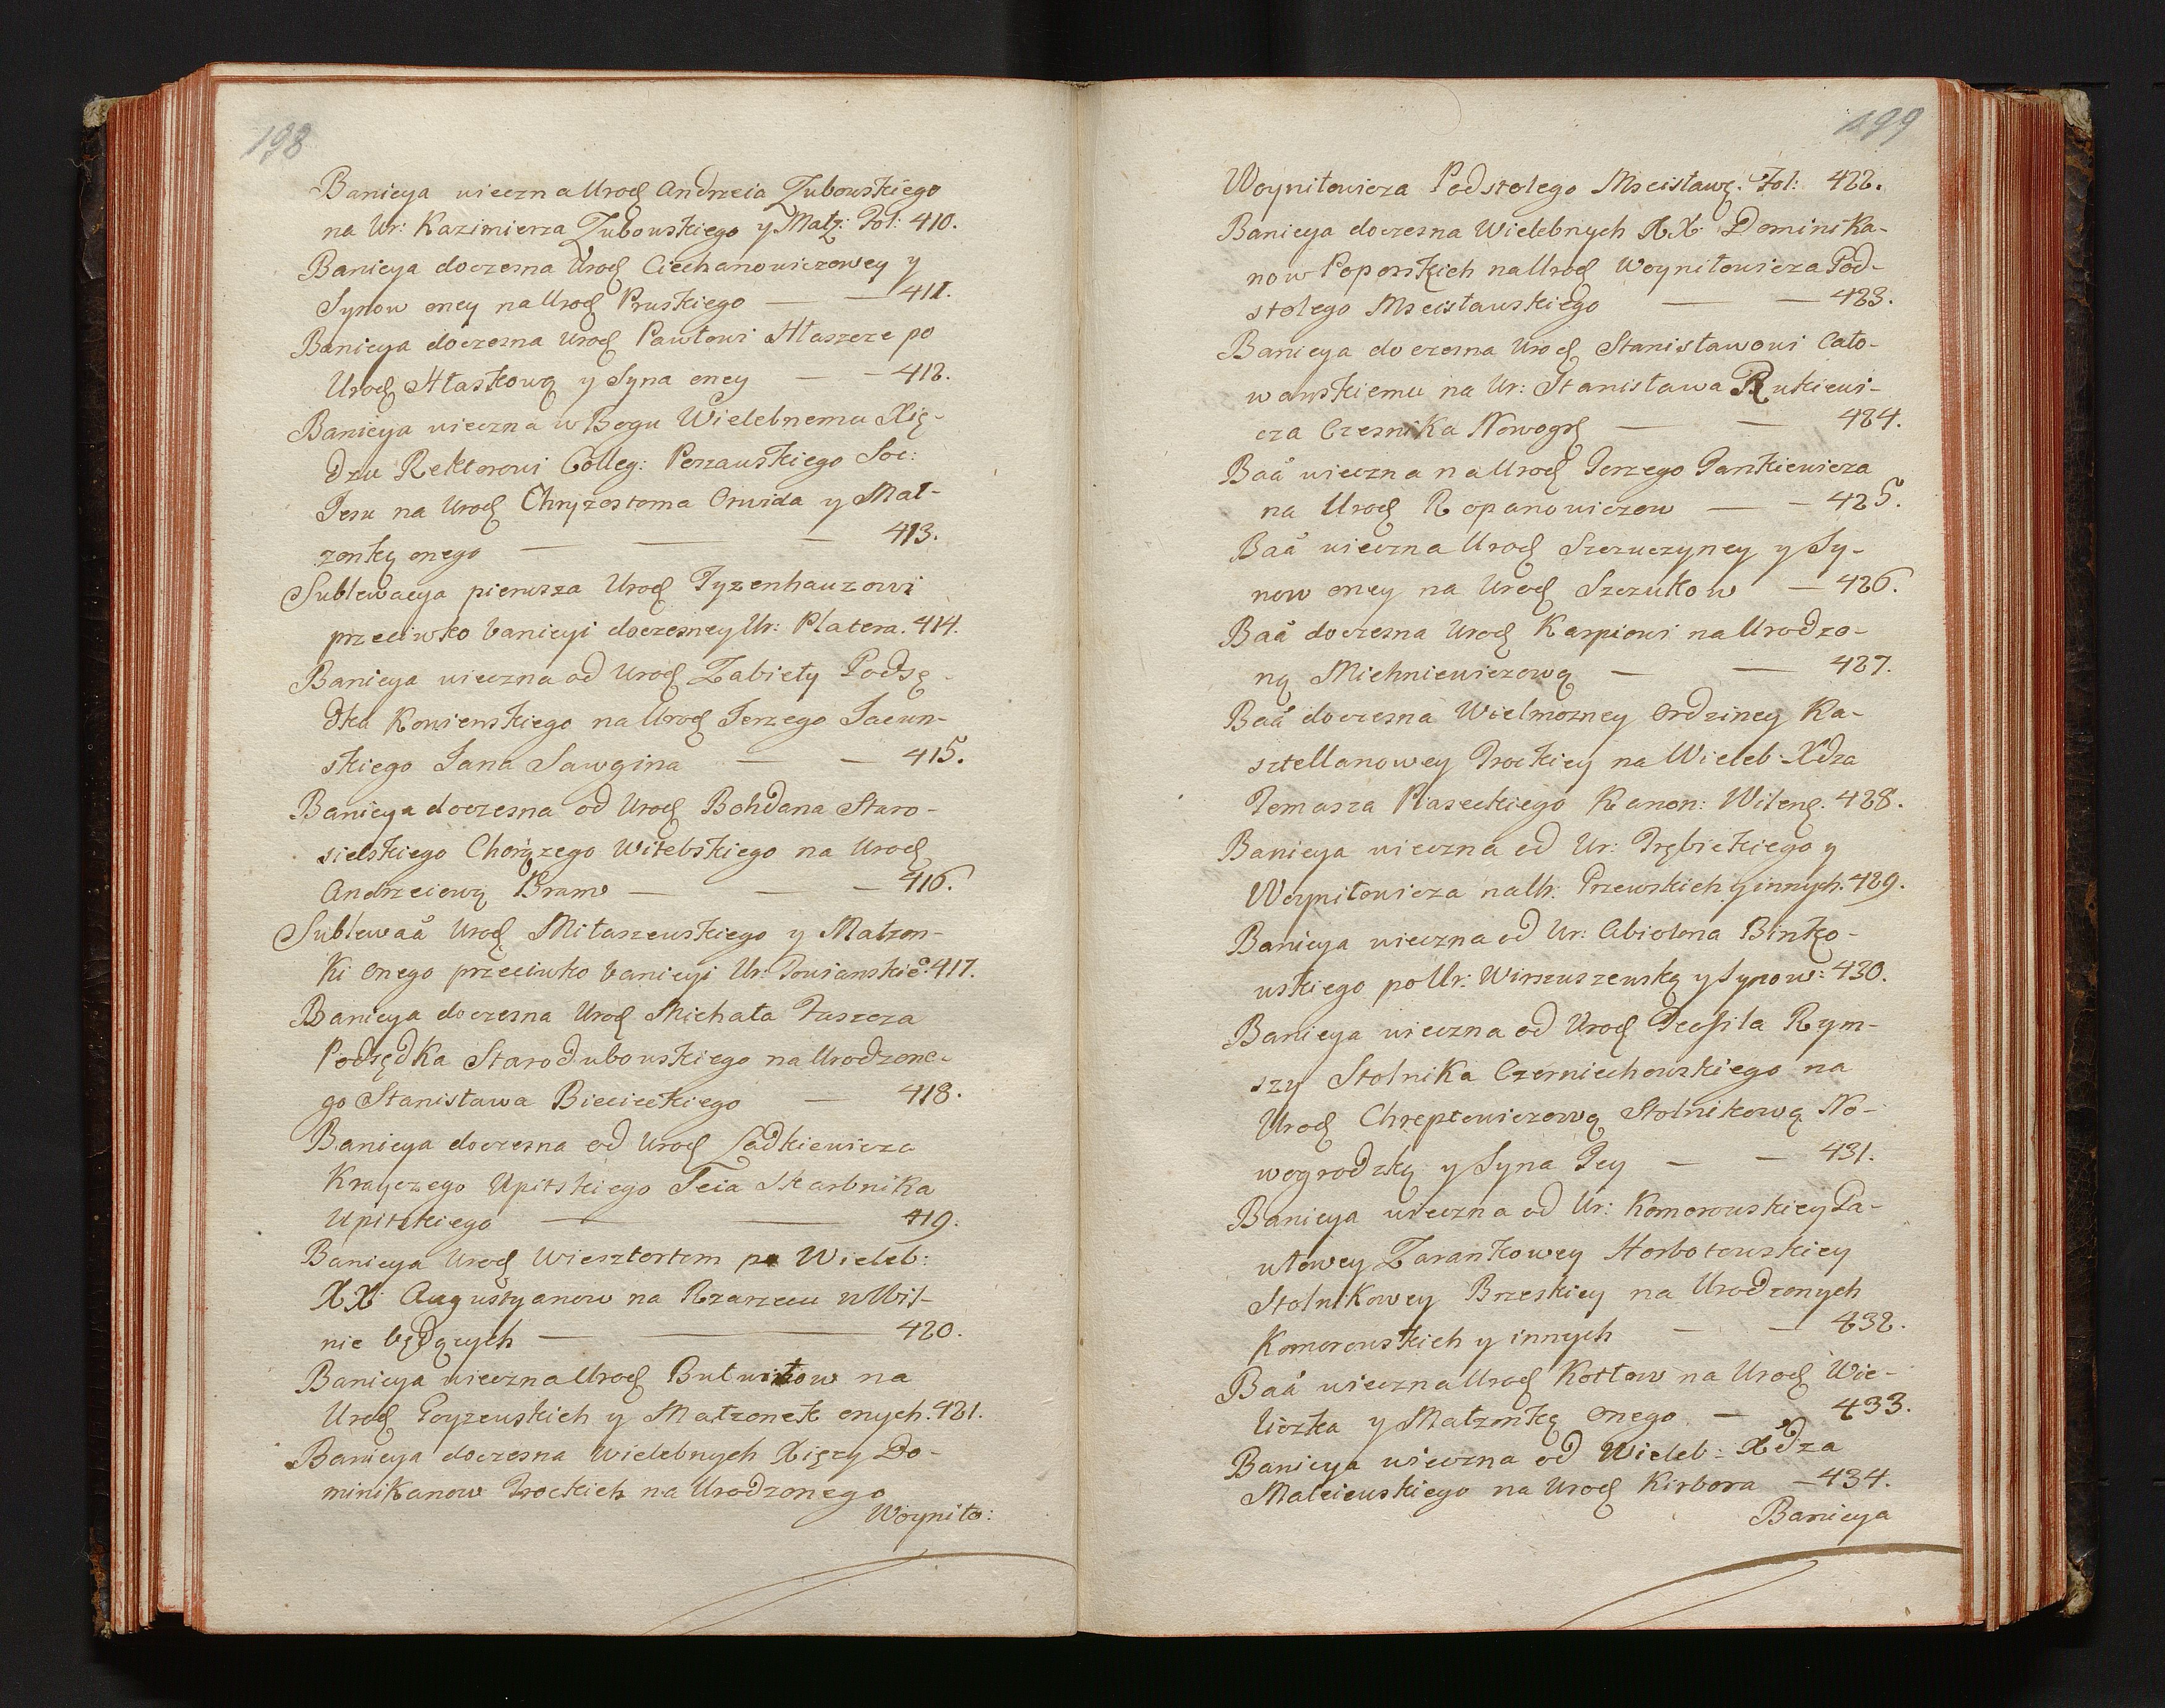 198
Banicya wieczna Urod Andrzeia Zubowskiego
na Ur: Kazimierza Zubowskiego y Małż: Fol: 410.
Banicya doczesna Urod Ciechanowiczowey y
Synow oney na Urod Pruskiego — — 411.
Banicya doczesna Urod Pawłowi Hłaszcze po
Urod Hłaskową y Syna oney — — 412.
Banicya wieczna w Bogu Wielebnemu Xię-
dzu Rektorowi Colleg: Poszauskiego Soc:
Jesu na Urod Chryzostoma Orwida y Mał-
zonkę onego — — — 413.
Sublewacya pierwsza Urod Tyzenhauzowi
przeciwko banicyi doczesney Ur: Platera. 414.
Banicya wieczna od Urod Zabieły Podsę-
dka Kowienskiego na Urod Jerzego Jacun-
skiego Jana Sawgina — — 415.
Banicya doczesna od Urod Bohdana Staro-
sielskiego Chorązego Witebskiego na Urod
Andrzeiową Bramo — — — 416.
Sublewaã Urod Mitaszewskiego y Małzon-
ki onego przeciwko banicyi Ur: Towianskie͠. 417.
Banicya doczesna Urod Michała Tuszcza
Podsędka Starodubowskiego na Urodzone-
go Stanisława Biecieckiego — 418.
Banicya doczesna od Urod Ladkiewicza
Krayczego Upitskiego Teia Skarbnika
Upitskiego — — 419.
Banicya Urod Wiesztortom po Wieleb:
XX. Augustyanow na Rzarzeczu w Wil-
nie będących — — 420.
Banicya wieczna Urod Butwiłow na
Urod Goyzewskich y Małzonek onych. 421.
Banicya doczesna Wielebnych Xięzy Do-
minikanow Trockich na Urodzonego
Woyniło:
199
Woyniłowicza Podstolego Mscisławs: Fol: 422.
Banicya doczesna Wielebnych XX. Dominika-
now Poporskich na Urod Woyniłowicza Pod-
stolego Mscisławskiego — — 423.
Banicya doczesna Urod Stanisławowi Cato-
wanskiemu na Ur: Stanisława Rukiewi-
cza Czesnika Nowogrd — — 424.
Baã wieczna na Urod Jerzego Jankiewicza
na Urod Ropanowiczow — — 425.
Baã wieczna Urod Szczuczyney y Sy-
now oney na Urod Szczukow — 426.
Baã doczesna Urod Karpiowi na Urodzo-
ną Michniewiczową — — 427.
Baã doczesna Wielmozney Ordziney Ka-
sztellanowey Trockiey na Wieleb: Xdza
Tomasza Piaseckiego Kanon: Wilens. 428.
Banicya wieczna od Ur: Trębickiego y
Woyniłowicza na Ur: Przewskich y innych. 429.
Banicya wieczna od Ur: Abiolona Binko-
wskiego po Ur: Wirszuszewską y Synow: 430.
Banicya wieczna od Urod Teofila Rym-
szy Stolnika Czerniechowskiego na
Urod Chreptowiczową Stolnikową No-
wogrodzką y Syna Jey — — 431.
Banicya wieczna od Ur: Komorowskiey Pa-
włowey Zarankowey Horbotowskiey
Stolnikowey Brzeskiey na Urodzonych
Komorowskich y innych — — 432.
Baã wieczna Urod Kotłow na Urod Wie-
liczka y Małzonkę onego. — 433.
Banicya wieczna od Wieleb: Xdza
Maleiewskiego na Urod Kirbora — 434.
Banicya